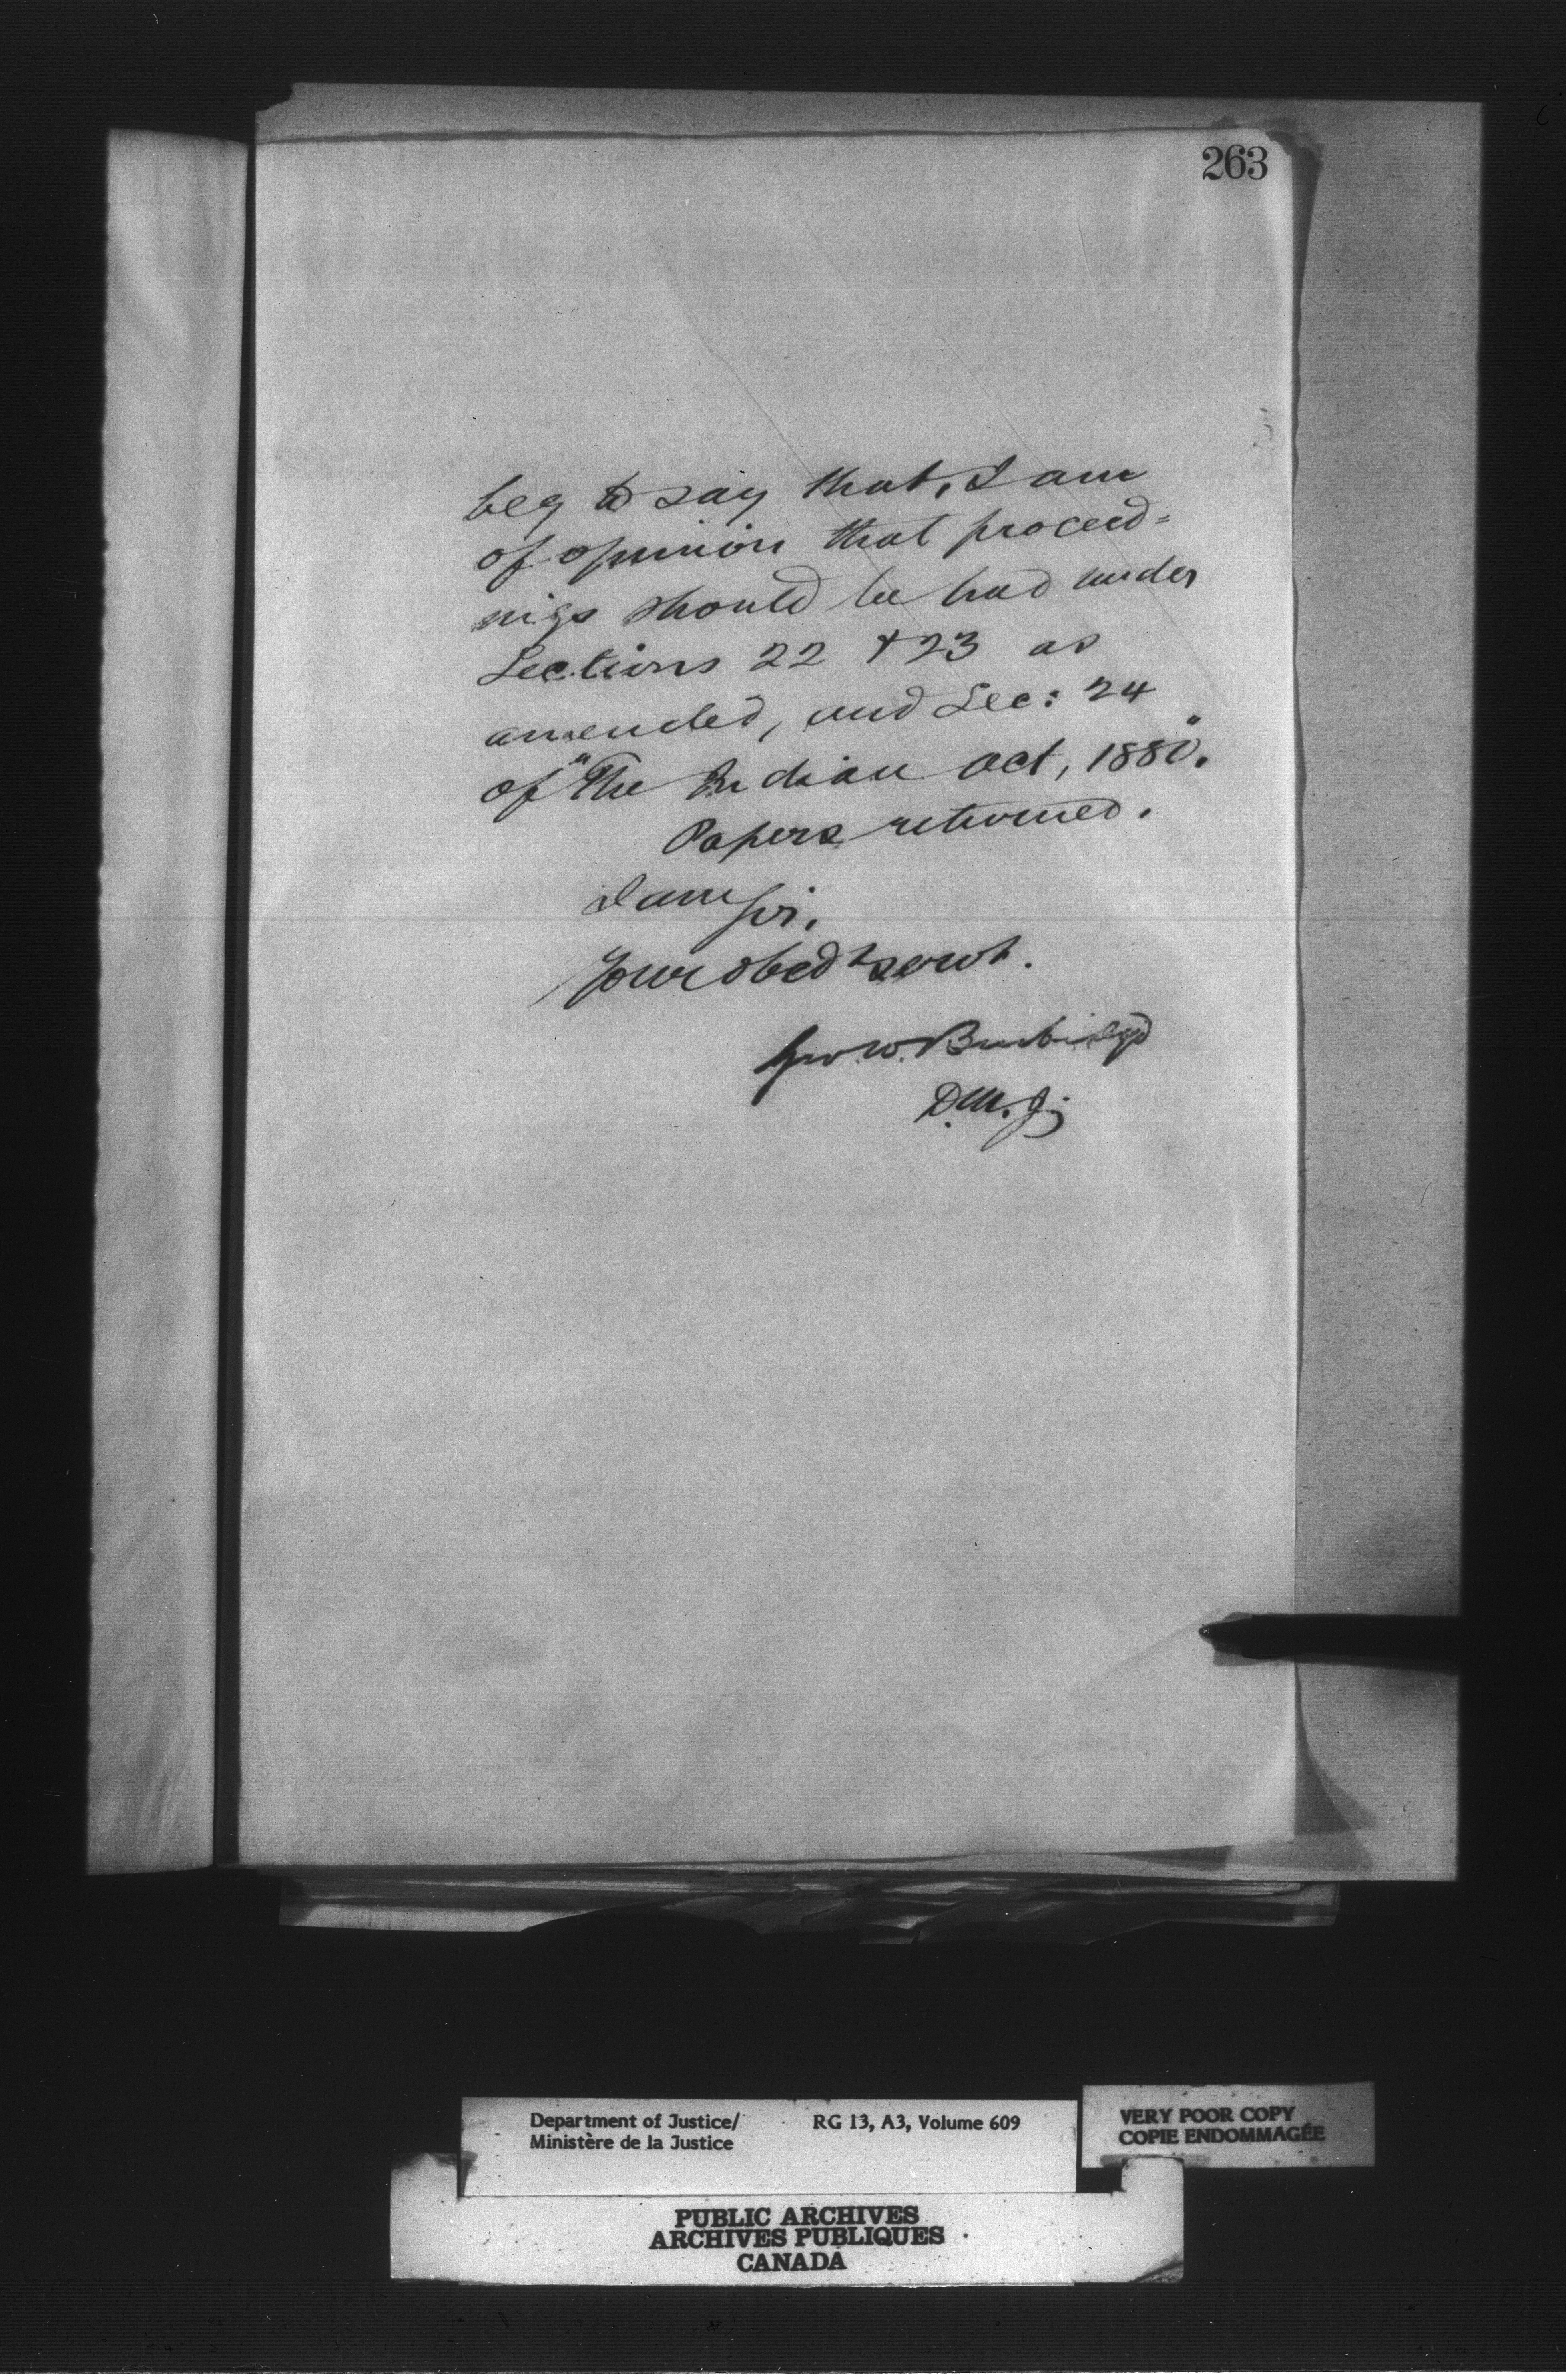 263
beg to say that, I am
of opinion that proceed=
ings should be had under
Sections 22 & 23 as
amended, and Sec: 24
of "The Indian Act, 1880".
Papers returned.
I am Sir,
Your obedt servt.
Geo. W. Burbidge
D.M.J.
Department of Justice/ RG 13, A3, Volume 609
Ministère de la Justice
VERY POOR COPY
COPIE ENDOMMAGÉE
PUBLIC ARCHIVES
ARCHIVES PUBLIQUES
CANADA